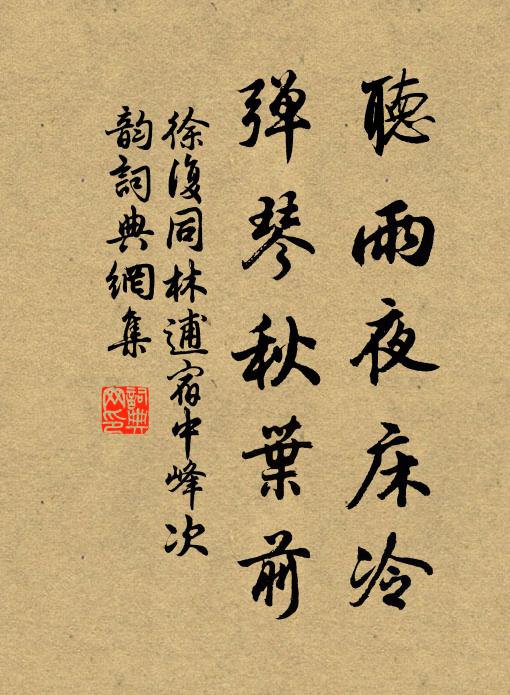 聽雨夜床冷
弹琴秋葉前
徐復同林逋宿中峰次
韵詞典網集
詞典
网印